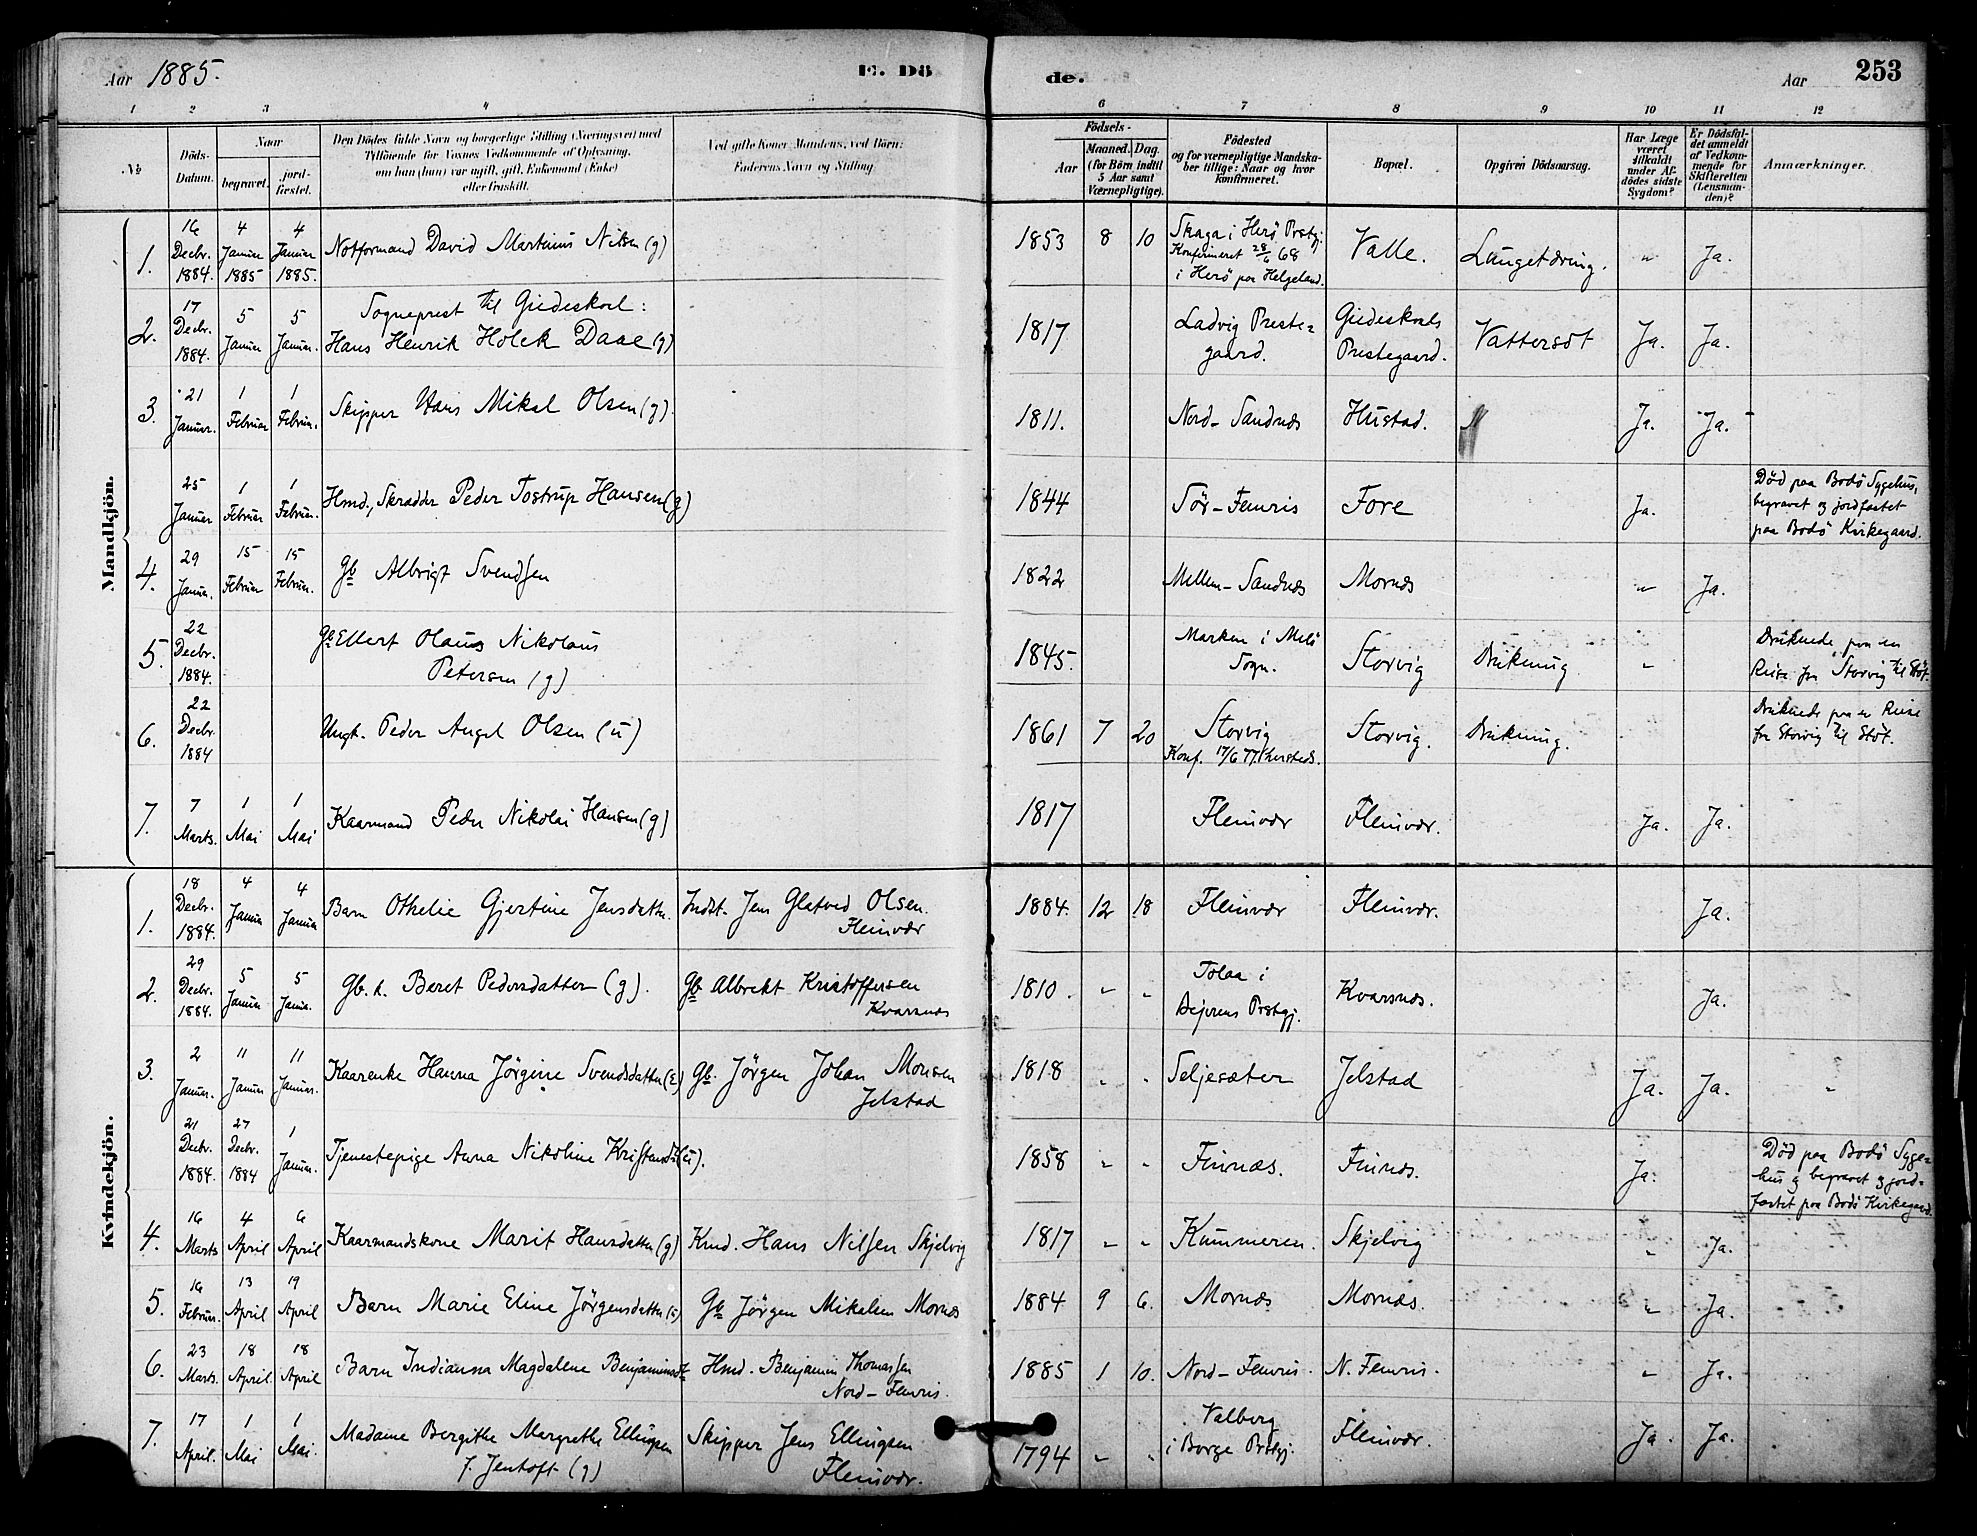 Aar 1885.
E. Dö
de.
Aar
253
1 2 3 4
6 7 8 9 10 11 12
No
Döds-Datum.
Naar
begravet.
jordfæstet.
Den Dödes fulde Navn og borgerlige Stilling (Næringsvei) med
Tilföiende for Voxnes Vedkommende af Oplysning,
om han (hun) var ugift, gift, Enkemand (Enke)
eller fraskilt.
Ved gifte Koner Mandens, ved Börn:
Faderens Navn og Stilling.
Födsels-
Aar
Maaned. Dag.
(for Börn indtil
5 Aar samt
Værnepligtige).
Födested
og for værnepligtige Mandska-
ber tillige: Naar og hvor
konfirmeret.
Bopæl.
Opgiven Dödsaarsag.
Har Læge
været
tilkaldt
under Af-
dödes sidste
Sygdom?
Er Dödsfal-
det anmeldt
af Vedkom-
mende for
Skifteretten
(Lensman-
den)?
Anmærkninger.
Mandkjön.
1. 16 Decbr. 1884. 4 Januar 1885 4 Januar 1885. Notformand David Martinus Nilsen (g) 1853 8 10 Skaga i Herö Prstgj. Konfirmeret 28/6 68 i Herö paa Helgeland. Valle. Lungetæring. " Ja.
2. 17 Decbr. 1884. 5 Januar 5 Januar. Sogneprest til Gildeskaal: Hans Henrik Holck Daae (g) 1817 Ladvig Prestegaard. Gildeskaals Prestegaard. Vattersot Ja. Ja.
3. 21 Januar. 1 Februar 1 Februar. Skipper Hans Mikal Olsen (g). 1811. Nord-Sandnæs Hustad. Ja. Ja.
25 Januar 1 Februar 1 Februar. Hmd., Skrædder Peder Tostrup Hansen (g) 1844 Sör-Fenris Fore Ja. Död paa Bodö Sygehus, begravet og jordfæstet paa Bodö Kirkegaard.
4. 29 Januar. 15 Februar 15 Februar. Gb Albrigt Svendsen 1822 Mellem-Sandnæs Mornæs " Ja.
5. 22 Decbr. 1884. Gb Ellert Olaus Nikolaus Petersen (g) 1845. Marken i Melö Sogn. Storvig Drukning " Druknede paa en Reise fra Storvig til Stöt.
6. 22 Decbr. 1884 Ungk. Peder Angel Olsen (u) 1861 7 20 Storvig Konf. 17/6 77 Storvig. Drukning. Druknede paa en Reise fra Storvig til Stöt.
7. 7 Marts. 1 Mai 1 Mai Kaarmand Peder Nikolai Hansen (g) 1817 Fleinvær Fleinvær. Ja. Ja.
Kvindekjön.
1. 18 Decbr. 1884. 4 Januar 4 Januar Barn Othelie Gjertine Jensdatter. Indst. Jens Glatved Olsen. Fleinvær 1884. 12 18 Fleinvær Fleinvær. Ja.
2. 29 Decbr. 1884. 5 Januar 5 Januar. Gb. k. Beret Pedersdatter (g). Gb Albrekt Kristoffersen Kvarsnæs 1810. " " Tolaa i Beierens Prstgj. Kvarsnæs. Ja.
3. 2 Januar. 11 Januar 11 Januar. Kaarenke Hanna Jörgine Svendsdatter (E) Gb. Jörgen Johan Monsen Jelstad 1818 " " Seljesæter Jelstad Ja. Ja. "
21 Decbr. 1884. 27 Decbr. 1884 1 Januar. Tjenestepige Anna Nikoline (u). 1858 " " Finnæs. Finnæs. Ja. Död paa Bodö Sygehus og begravet og jordfæstet paa Bodö Kirkegaard.
4. 16 Marts 4 April 6 April Kaarmandskone Marit Hansdatter (g) Kmd. Hans Nilsen Skjelvig 1817 " " Kummeren. Skjelvig " Ja.
5. 16 Februar. 13 April 19 April Barn Marie Eline Jörgensdatter (u) Gb Jörgen Mikalsen Mornæs 1884 9 6. Mornæs Mornæs. " Ja.
6. 23 Marts. 18 April. 18 April Barn Indianna Magdalene Benjaminsdt Hmd. Benjamin Thomassen Nord-Fenris. 1885 1 10. Nord-Fenris. N. Fenris. " Ja.
7. 17 April. 1 Mai 1 Mai. Madame Bergithe Margrethe Ellingsen f. Jentoft (g) Skipper Jens Ellingsen Fleinvær. 1794 " " Valberg i Borge Prstgj. Fleinvær. Ja. Ja.